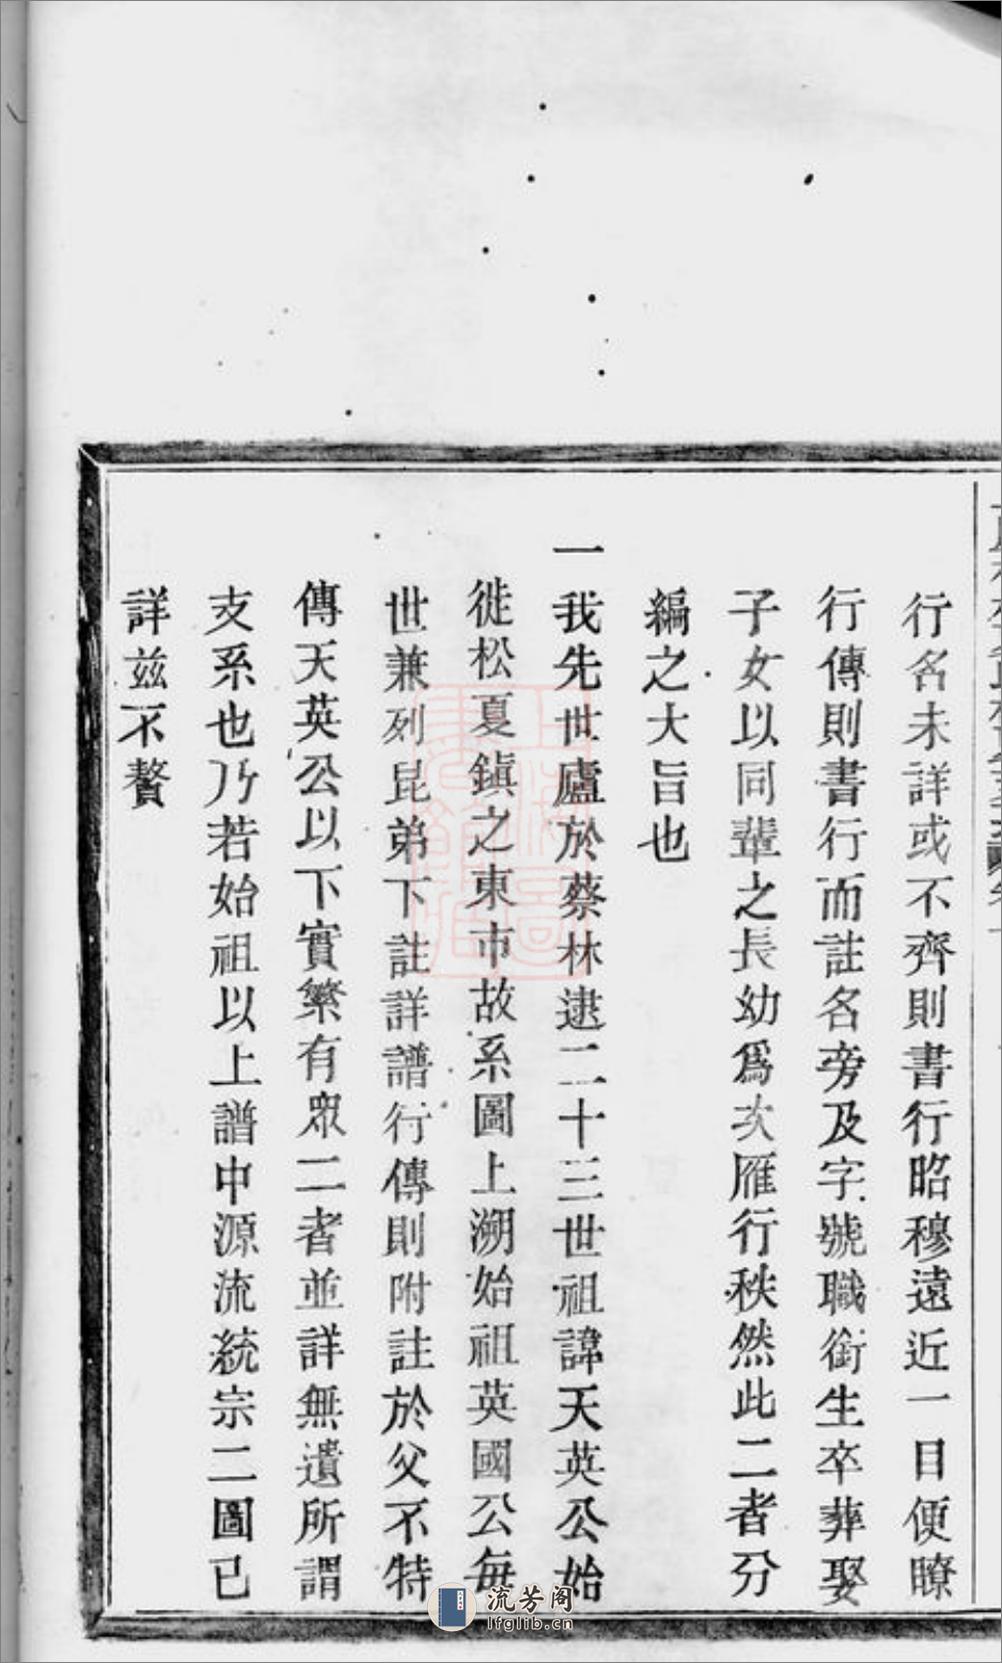 行名未詳或不齊則書行昭穆遠近一目便瞭
行傳則書行而註名旁及字號職銜生卒葬娶
子女以同輩之長幼爲次雁行秩然此二者分
編之大旨也
一我先世廬於蔡林逮二十三世祖諱天英公始
徙松夏鎭之東市故系圖上溯始祖英國公每
世兼列昆弟下註詳譜行傳則附註於父不特
傳天英公以下實繁有眾二者並詳無遺所謂
支系也乃若始祖以上譜中源流統宗二圖已
詳茲不贅
上海圖書館藏
流芳阁
lfglib.cn